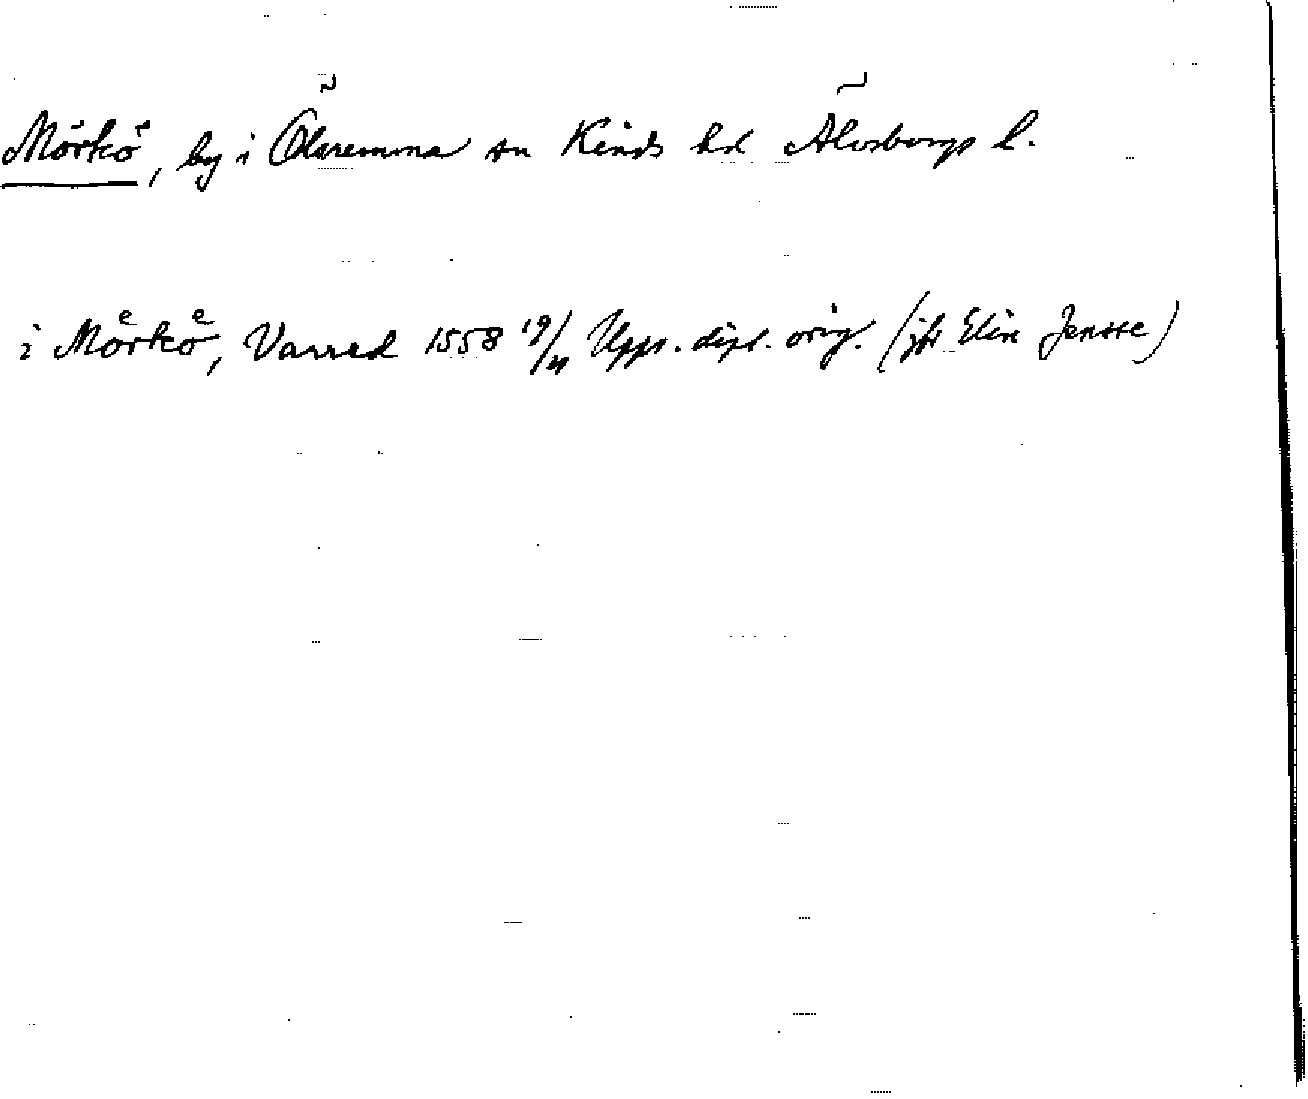 Mörkö, by i Ölsremma sn Kinds hd Älvsborgs l.
i Moͤrkoͤ, Varred 1558 19/11 Upps. dipl. orig. (jfr Elin Jensse)